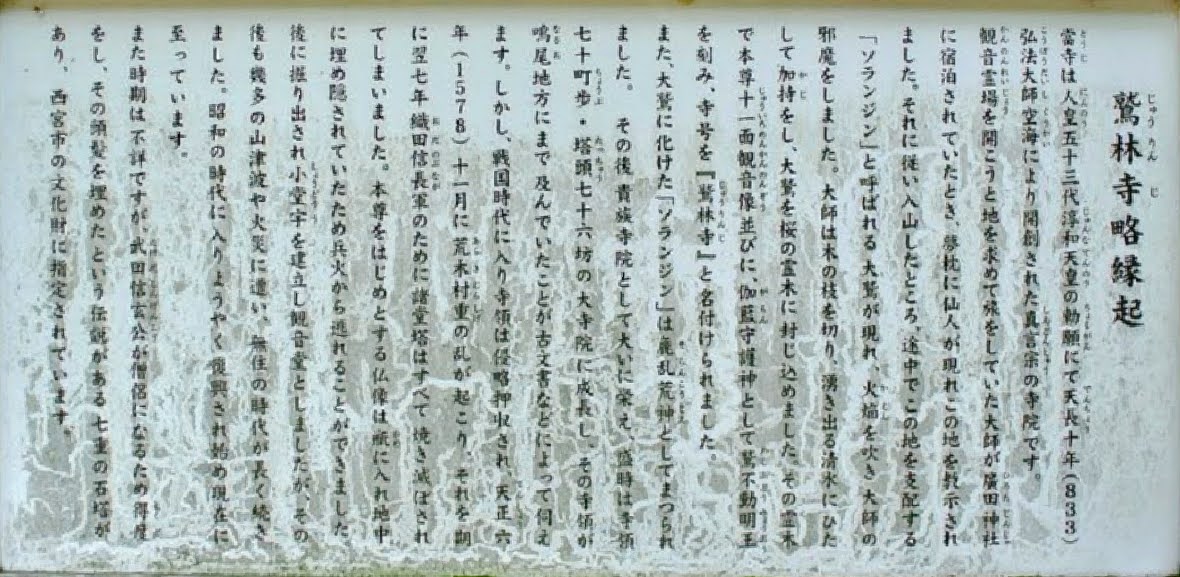 鷲林寺略縁起
當寺は人皇五十三代淳和天皇の勅願にて天長十年(833)
弘法大師空海により開創された真言宗の寺院です。
観音霊場を開こうと地を求めて旅をしていた大師が廣田神社
に宿泊されていたとき、夢枕に仙人が現れこの地を教示され
ました。それに従い入山したところ、途中でこの地を支配する
「ソランジン」と呼ばれる大鷲が現れ、火焔を吹き大師の
邪魔をしました。大師は木の枝を切り、湧き出る清水にひた
して加持をし、大鷲を桜の霊木に封じ込めました。その霊木
で本尊十一面観音像並びに、伽藍守護神として鷲不動明王
を刻み、寺号を『鷲林寺』と名付けられました。
また、大鷲に化けた「ソランジン」は麁乱荒神としてまつられ
ました。その後貴族寺院として大いに栄え、盛時は寺領
七十町歩・塔頭七十六坊の大寺院に成長し、その寺領が
鳴尾地方にまで及んでいたことが古文書などによって伺え
ます。しかし、戦国時代に入り寺領は侵略押収され、天正六
年(1578)十一月に荒木村重の乱が起こり、それを期
に翌七年織田信長軍のために諸堂塔はすべて焼き滅ぼされ
てしまいました。本尊をはじめとする仏像は瓶に入れ地中
に埋め隠されていたため兵火から逃れることができました
後に掘り出され小堂宇を建立し観音堂としましたが、その
後も幾多の山津波や火災に遭い、無住の時代が長く続き
ました。昭和の時代に入りようやく復興され始め現在に
至っています。
また時期は不詳ですが、武田信玄公が僧侶になるため得度
をし、その頭髪を埋めたという伝説がある七重の石塔が
あり、西宮市の文化財に指定されています。